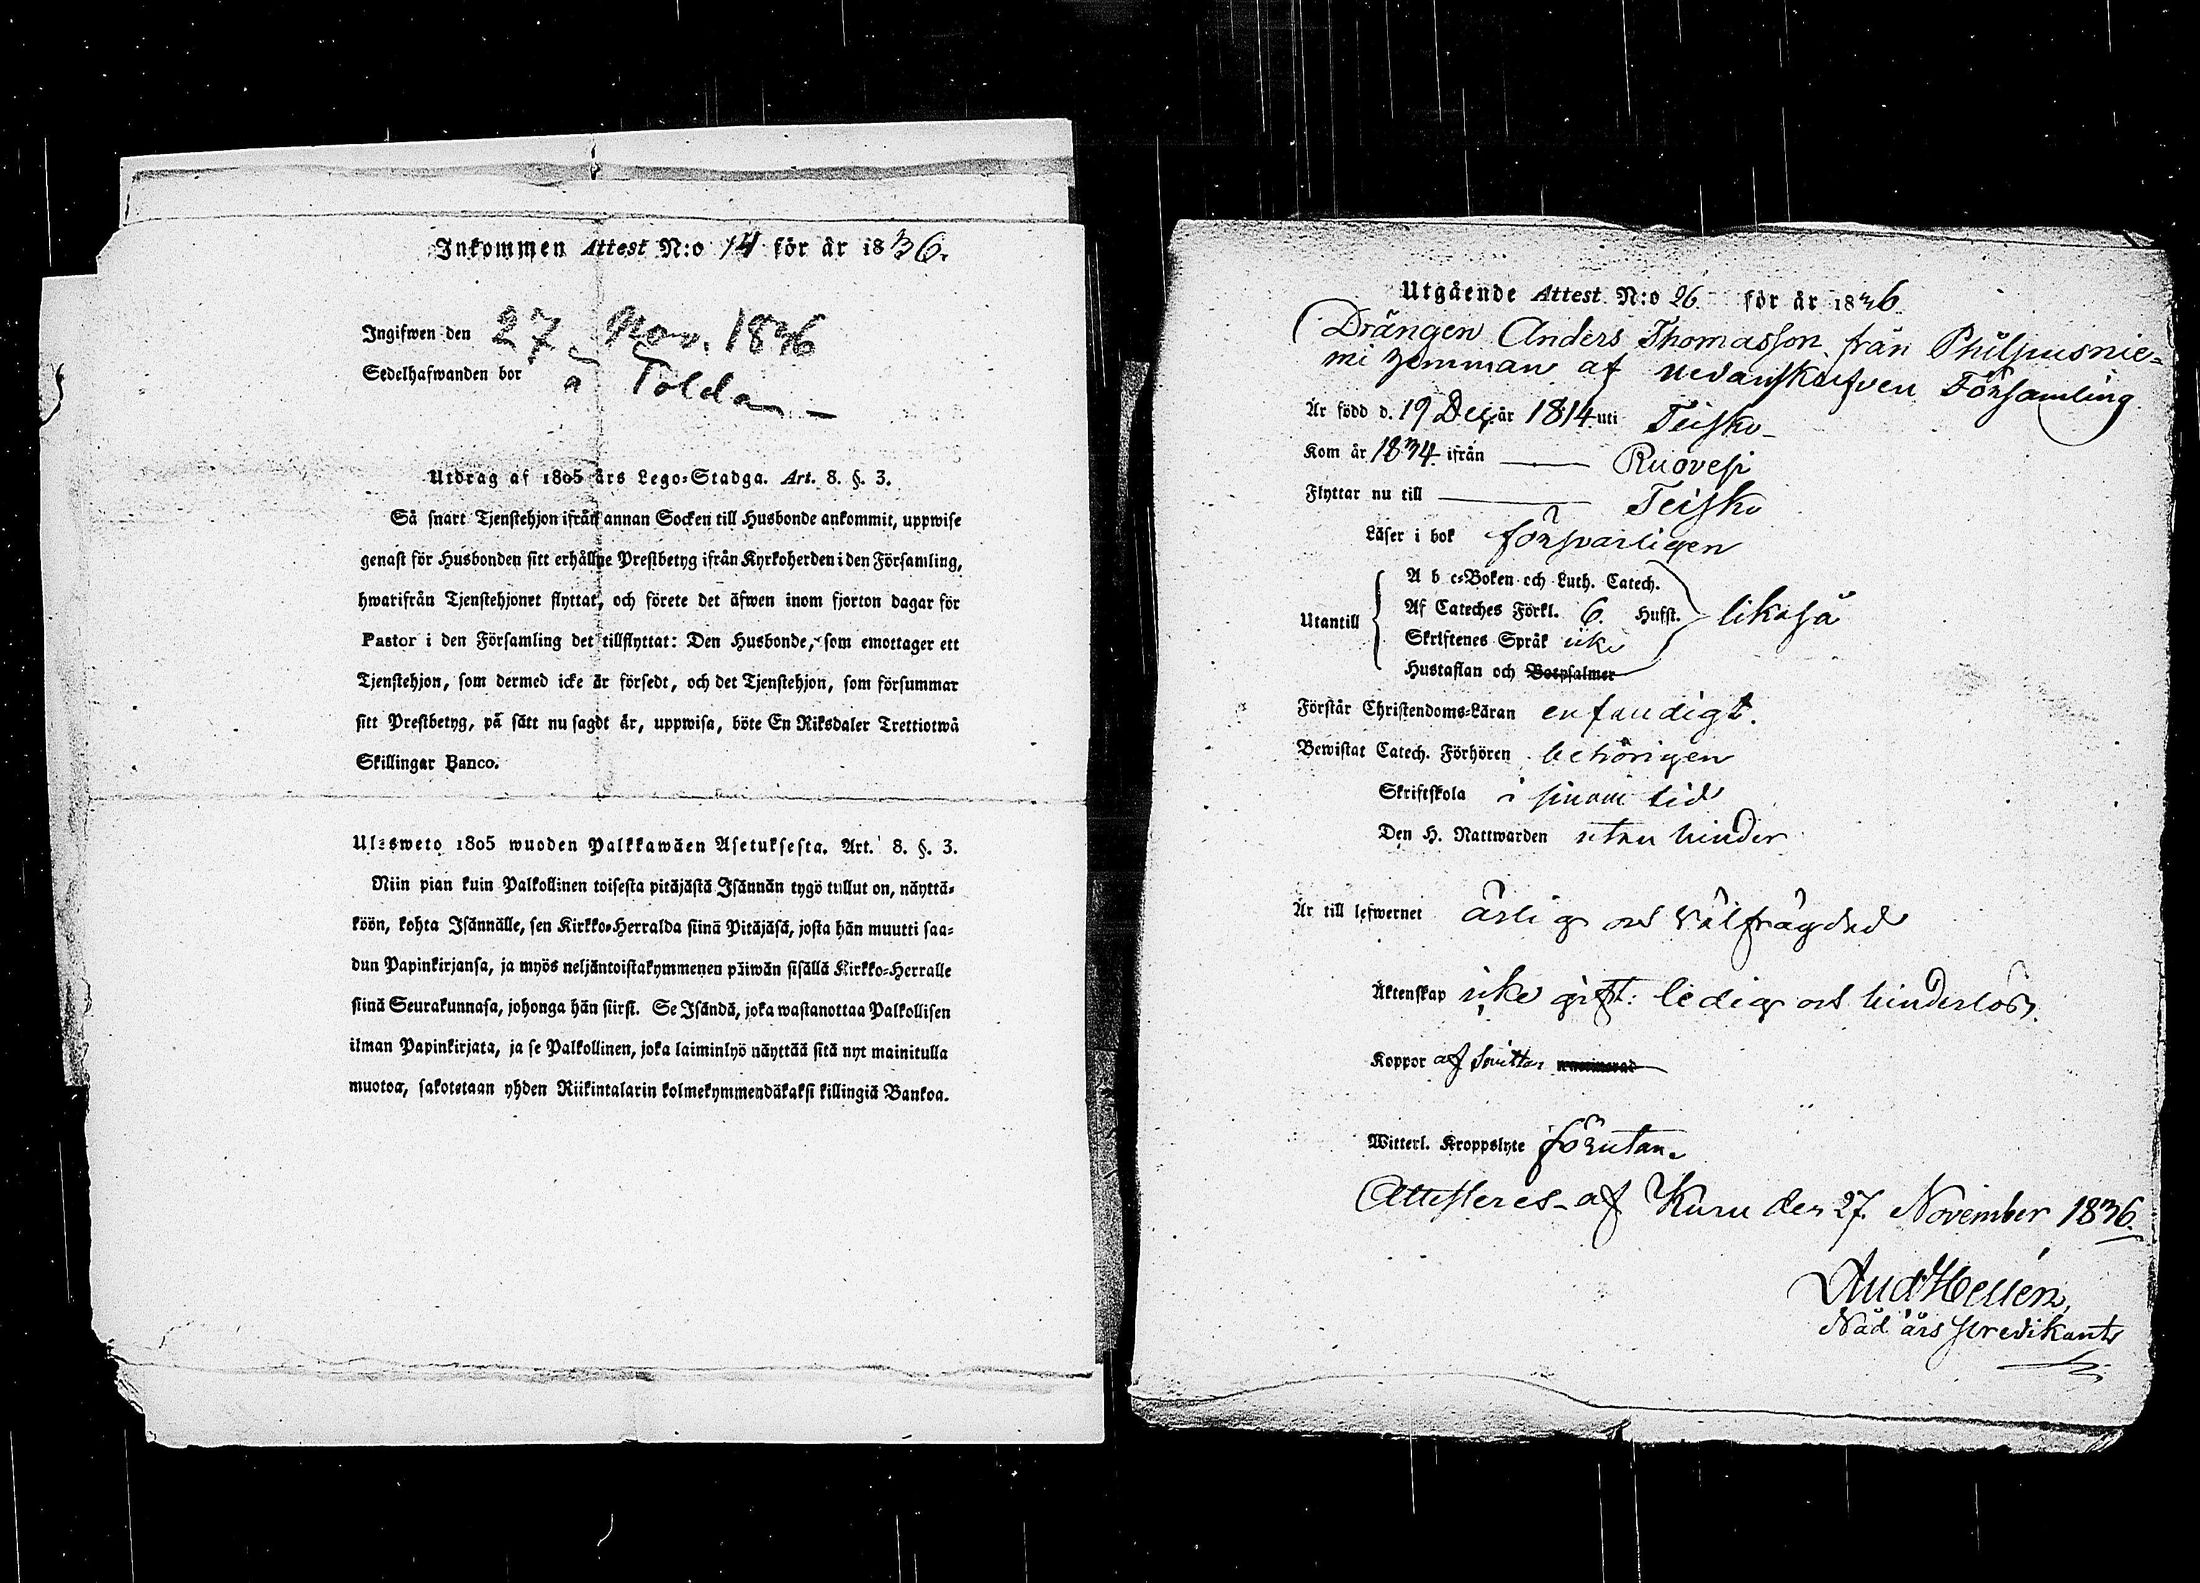 Inkommen Attest N:o 14 för år 1836.
Ingifwen den 27 Nov. 1836
Sedelhafwanden bor å Tolda
Utdrag af 1805 års Lego-Stadga. Art. 8. §. 3.
Så snart Tjenstehjon ifrån annan Socken till Husbonde ankommit, uppwise
genast för Husbonden sitt erhållne Prestbetyg ifrån Kyrkoherden i den Församling,
hwarifrån Tjenstehjonet flyttat, och förete det äfwen inom fjorton dagar för
Pastor i den Församling det tillflyttat: Den Husbonde, som emottager ett
Tjenstehjon, som dermed icke är försedt, och det Tjenstehjon, som försummar
sitt Prestbetyg, på sätt nu sagdt är, uppwisa, böte En Riksdaler Trettiotwå
Skillingar Banco.
Ulosweto 1805 wuoden Palkkawäen Asetuksesta. Art. 8. §. 3.
Niin pian kuin Palkollinen toisesta pitäjästä Isännän tygö tullut on, näyttä-
köön, kohta Isännälle, sen Kirkko-Herralda siinä Pitäjäsä, josta hän muutti saa-
dun Papinkirjansa, ja myös neljäntoistakymmenen päiwän sisällä Kirkko-Herralle
siinä Seurakunnasa, johonga hän siirsi. Se Isändä, joka wastanottaa Palkollisen
ilman Papinkirjata, ja se Palkollinen, joka laiminlyö näyttää sitä nyt mainitulla
muotoa, sakotetaan yhden Riikintalarin kolmekymmendäkaksi killingiä Bankoa.
Utgående Attest N:o 26 för år 1836
Drängen Anders Thomasson från Philpusnie-
mi hemman af nedanskrifven Församling
Är född d. 19 Dec. år 1814 uti Teisko
Kom år 1834 ifrån Ruovesi
Flyttar nu till Teisko
Läser i bok försvarligen
A b c-Boken och Luth. Catech.
Utantill Af Cateches Förkl. 6. Hufst. likaså
Skriftenes Språk icke
Hustaflan och Botpsalmer
Förstår Christendoms-Läran enfaldigt.
Bewistat Catech. Förhören behörigen
Skriftskola i sinom tid
Den H. Nattwarden utan hinder
Är till lefwernet ärlig och välfrägdad
Äktenskap icke gift: ledig och hinderlös.
Koppor af Smittor
Witterl. Kroppslyte förutan.
Attesteres af Kuru den 27. November 1836.
And Hellén,
Nåd års predikant